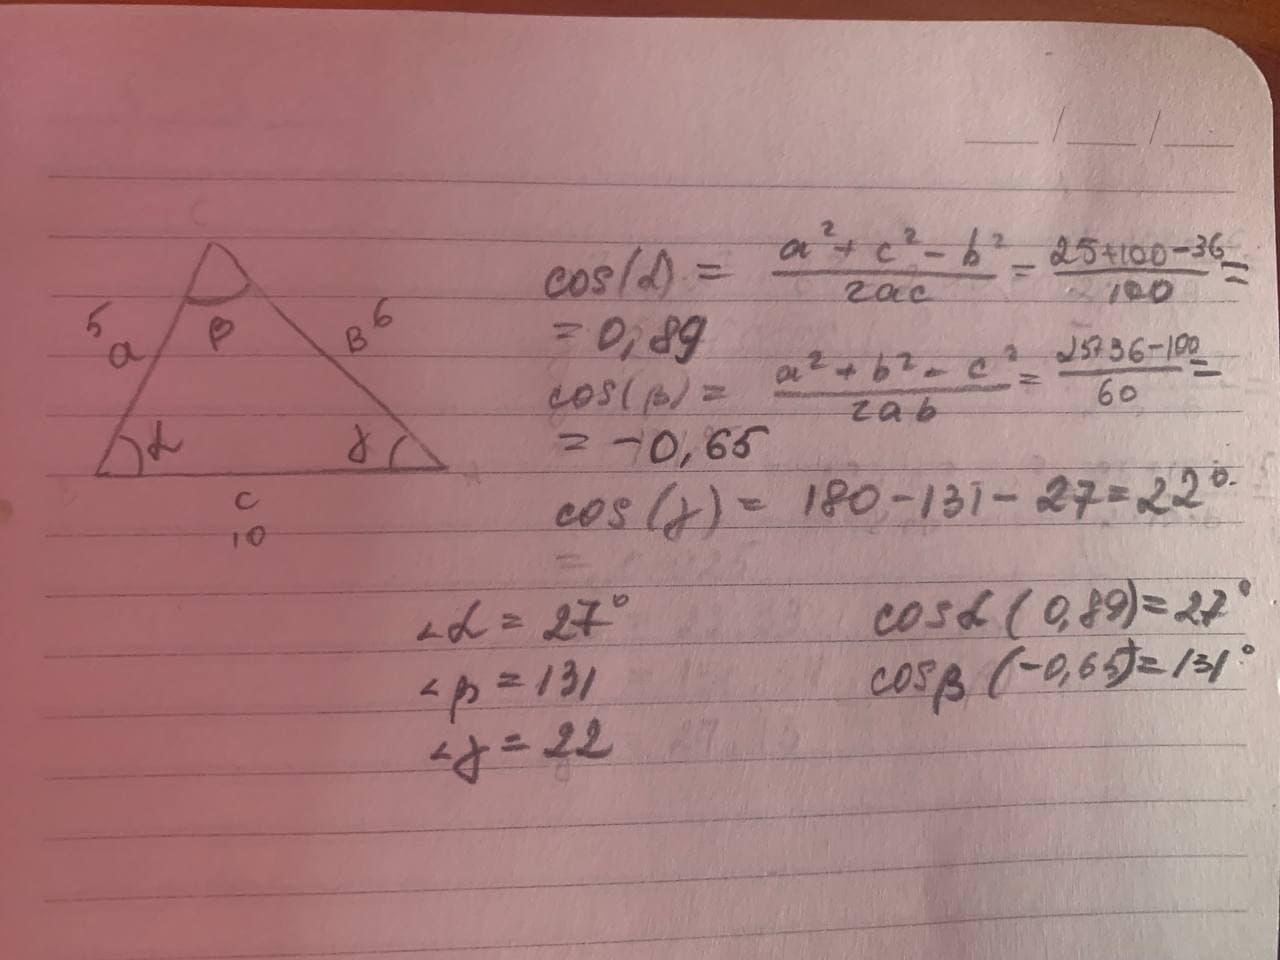 5
a
β
B 6
α
γ
c
10
cos(α) = a² + c² - b² / 2ac = 25+100-36 / 100 =
= 0,89
cos(β) = a² + b² - c² / 2ab = 25+36-100 / 60 =
= -0,65
cos(γ) = 180 - 131 - 27 = 22°.
∠α = 27°
∠β = 131
∠γ = 22
cosα(0,89) = 27°
cosβ(-0,65) = 131°